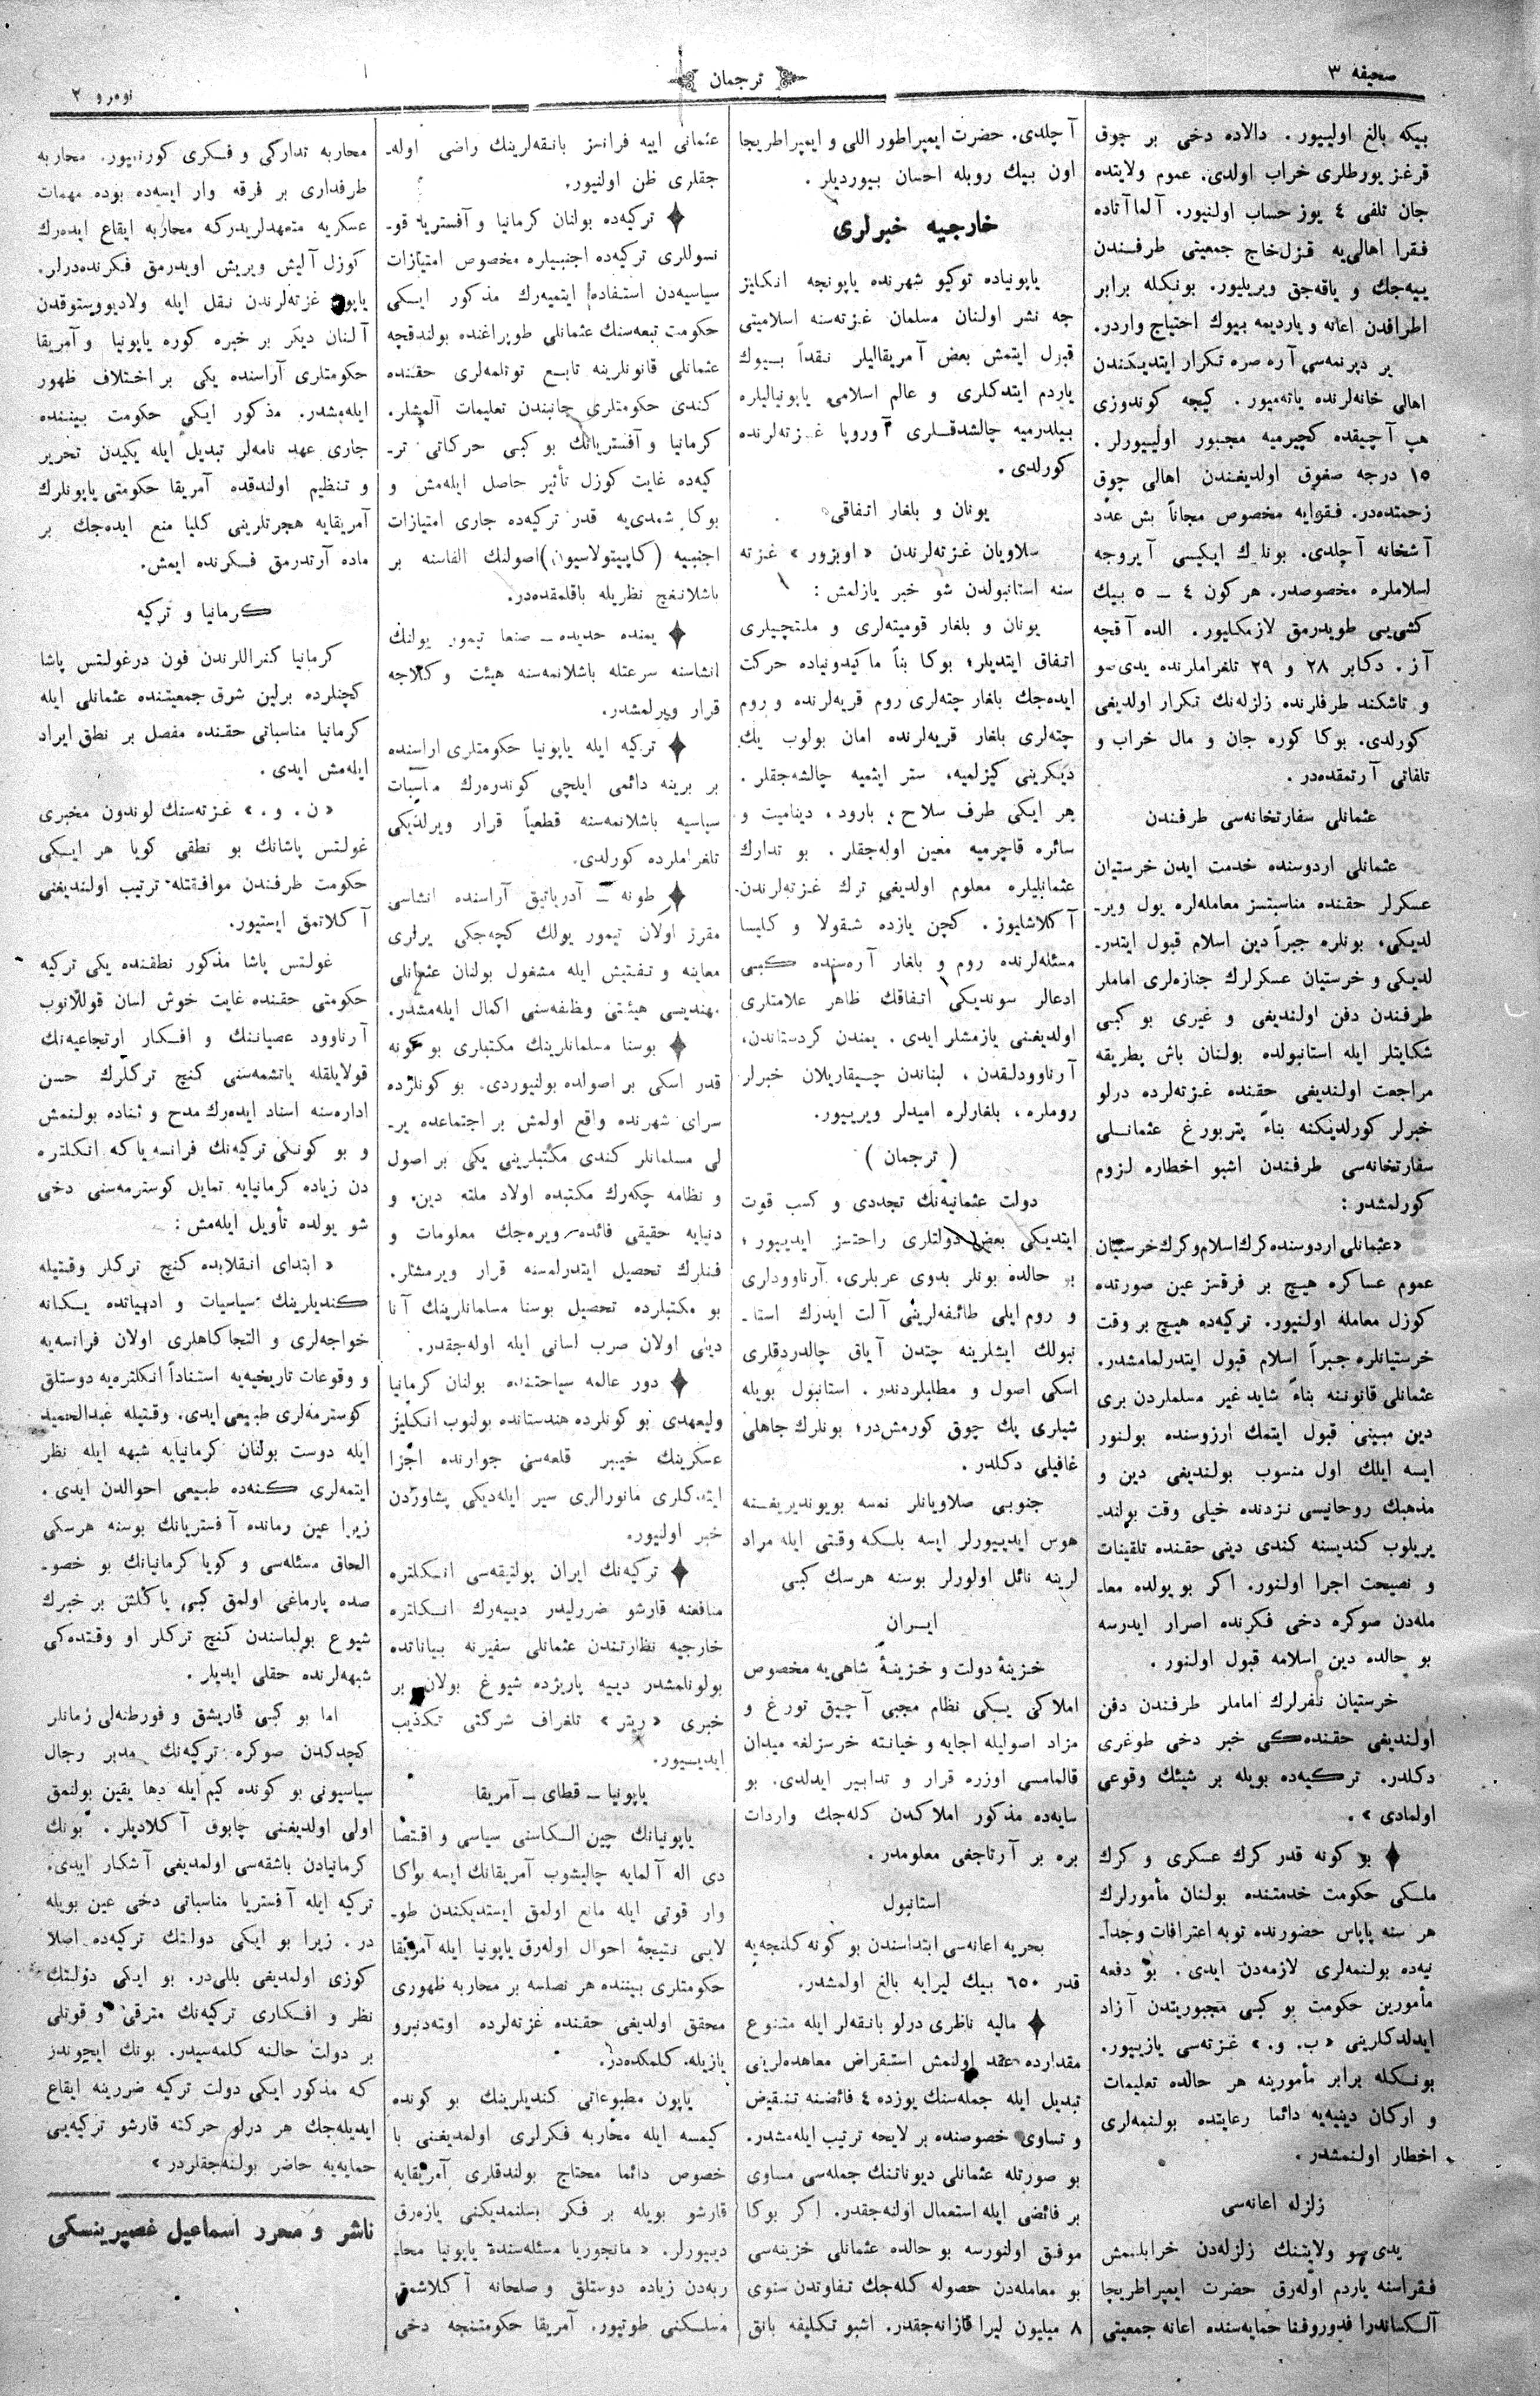 صحیفه ٣
ترجمان
نومرو ٢
بیكه بالغ اولییور. دالاده دخی بر چوق
قرغز یورطلری خراب اولدی. عموم ولایتده
جان تلفی ٤ یوز حساب اولنیور. آلماآتاده
فقرا اهالی‌یه قزل‌خاج جمعیتی طرفندن
ییه‌جك و یاقه‌جق ویریلیور. بونكله برابر
اطرافدن اعانه و یاردیمه بیوك احتیاج واردر.
یر دیرنمه‌سی آره صره تكرار ایتدیكندن
اهالی خانه‌لرنده یاته‌میور. كیجه كوندوزی
هپ آچیقده كچیرمیه مجبور اولییورلر.
١٥ درجه صغوق اولدیغندن اهالی چوق
زحمتده‌در. فقرایه مخصوص مجاناً بش عدد
آشخانه آچلدی. بونلرك ایكیسی آیروجه
اسلاملره مخصوصدر. هركون ٤ – ٥ بیك
كشی‌یی طویدرمق لازمكلیور. الده آقچه
آز. دكابر ٢٨ و ٢٩ تلغراملرنده یدی‌صو
و تاشكند طرفلرنده زلزله‌نك تكرار اولدیغی
كورلدی. بوكا كوره جان و مال خراب و
تلفاتی آرتمقده‌در.
عثمانلی سفارتخانه‌سی طرفندن
عثمانلی اردوسنده خدمت ایدن خرستیان
عسكرلر حقنده مناسبتسز معامله‌لره یول ویر-
لدیكی، بونلره جبراً دین اسلام قبول ایتدر-
لدیكی و خرستیان عسكرلرك جنازه‌لری اماملر
طرفندن دفن اولندیغی و غیری بو كبی
شكایتلر ایله استانبولده بولنان باش پطریقه
مراجعت اولندیغی حقنده غزته‌لرده درلو
خبرلر كورلدیكنه بناءً پتربورغ عثمانلی
سفارتخانه‌سی طرفندن اشبو اخطاره لزوم
كورلمشدر:
«عثمانلی اردوسنده كرك اسلام و كرك خرستیان
عموم عساكره هیچ بر فرقسز عین صورتده
كوزل معامله اولنیور. تركیه‌ده هیچ بر وقت
خرستیانلره جبراً اسلام قبول ایتدرلمامشدر.
عثمانلی قانوننه بناءً شاید غیر مسلملردن بری
دین مبینی قبول ایتمك ارزوسنده بولنور
ایسه ایلك اول منسوب بولندیغی دین و
مذهبك روحانیسی نزدنده خیلی وقت بولند-
یریلوب كندیسنه كندی دینی حقنده تلقینات
و نصیحت اجرا اولنور. اكر بو یولده معا-
مله‌دن صوكره دخی فكرنده اصرار ایدرسه
بو حالده دین اسلامه قبول اولنور.
خرستیان نفرلرك اماملر طرفندن دفن
اولندیغی حقنده‌كی خبر دخی طوغری
دكلدر. تركیه‌ده بویله بر شیئك وقوعی
اولمادی».
بو كونه قدر كرك عسكری و كرك
ملكی حكومت خدمتنده بولنان مأمورلرك
هر سنه پاپاس حضورنده توبه اعترافات وجدا-
نیه‌ده بولنمه‌لری لازمه‌دن ایدی. بو دفعه
مأمورین حكومت بو كبی مجبوریتدن آزاد
ایدلدكلرینی «ب. و.» غزته‌سی یازییور.
بونكله برابر مأمورینه هر حالده تعلیمات
و اركان دینیه‌یه دائما رعایتده بولنمه‌لری
اخطار اولنمشدر.
زلزله اعانه‌سی
یدی صو ولایتنك زلزله‌دن خرابلنمش
فقراسنه یاردم اوله‌رق حضرت ایمپراطریچا
آلكساندرا فدوروفنا حمایه‌سنده اعانه جمعیتی
آچلدی. حضرت ایمپراطور اللی و ایمپراطریچا
اون بیك روبله احسان بیوردیلر.
خارجیه خبرلری
یاپونیاده توكیو شهرنده یاپونجه انكلیز
جه نشر اولنان مسلمان غزته‌سنه اسلامیتی
قبول ایتمش بعض آمریقالیلر نقداً بیوك
یاردم ایتدكلری و عالم اسلامی یاپونیالیلره
بیلدرمیه چالشدقلری آوروپا غزته‌لرنده
كورلدی.
یونان و بلغار اتفاقی
سلاویان غزته‌لرندن «اوبزور» غزته
سنه استانبولدن شو خبر یازلمش:
یونان و بلغار قومیته‌لری و ملتچیلری
اتفاق ایتدیلر؛ بوكا بناً ماكیدونیاده حركت
ایده‌جك بلغار چته‌لری روم قریه‌لرنده و روم
چته‌لری بلغار قریه‌لرنده امان بولوب یك
دیكرینی كیزلمیه، ستر ایتمیه چالشه‌جقلر.
هر ایكی طرف سلاح، بارود، دینامیت و
سائره قاچرمیه معین اوله‌جقلر. بو تدارك
عثمانلیلره معلوم اولدیغی ترك غزته‌لرندن
آكلاشلیوز. كچن یازده شقولا و كلیسا
مسئله‌لرنده روم و بلغار آره‌سنده كبی
ادعالر سوندیكی اتفاقك ظاهر علامتلری
اولدیغنی یازمشلر ایدی. یمندن كردستاندن،
آرناوودلقدن، لبناندن چیقاریلان خبرلر
روملره، بلغارلره امیدلر ویرییور.
(ترجمان)
دولت عثمانیه‌نك تجددی و كسب قوت
ایتدیكی بعض دولتلری راحتسز ایدییور؛
بو حالده بونلر بدوی عربلری، آرناوودلری
و روم ایلی طائفه‌لرینی آلت ایدرك استا-
نبولك ایشلرینه چتدن آیاق چالدردقلری
اسكی اصول و مطلبلردندر. استانبول بویله
شیلری پك چوق كورمش‌در؛ بونلرك جاهلی
غافیلی دكلدر.
جنوبی صلاویانلر نمسه بویوندیریغنه
هوس ایدییورلر ایسه بلكه وقتی ایله مراد
لرینه نائل اولورلر بوسنه هرسك كبی
ایران
خزینهٔ دولت و خزینهٔ شاهی‌یه مخصوص
املاكی یكی نظام مجبی آچیق تورغ و
مزاد اصولیله اجایه و خیانته خرسزلغه میدان
قالمامسی اوزره قرار و تدابیر ایدلدی. بو
سایه‌ده مذكور املاكدن كله‌جك واردات
بره بر آرتاجغی معلومدر.
استانبول
بحریه اعانه‌سی ابتداسندن بو كونه كلنجه‌یه
قدر ٦٥٠ بیك لیرایه بالغ اولمشدر.
مالیه ناظری درلو بانقه‌لر ایله متنوع
مقدارده عقد اولنمش استقراض معاهده‌لرینی
تبدیل ایله جمله‌سنك یوزده ٤ فائضنه تنقیض
و تساوی خصوصنده بر لایحه ترتیب ایله‌مشدر.
بو صورتله عثمانلی دیوناتنك جمله‌سی مساوی
بر فائضی ایله استعمال اولنه‌جقدر. اكر بوكا
موفق اولنورسه بو حالده عثمانلی خزینه‌سی
بو معامله‌دن حصوله كله‌جك تفاوتدن سنوی
٨ میلیون لیرا قازانه‌جقدر. اشبو تكلیفه بانق
عثمانی ایبه فرانسز بانقه‌لرینك راضی اوله-
جقلری ظن اولنیور.
تركیه‌ده بولنان كرمانیا و آفستریا قو-
نسوللری تركیه‌ده اجنبیلره مخصوص امتیازات
سیاسیه‌دن استفاده ایتمیه‌رك مذكور ایكی
حكومت تبعه‌سنك عثمانلی طوپراغنده بولندقچه
عثمانلی قانونلرینه تابع توتلمه‌لری حقنده
كندی حكومتلری جانبندن تعلیمات آلمشلر.
كرمانیا و آفستریانك بو كبی حركاتی تر-
كیه‌ده غایت كوزل تأثیر حاصل ایله‌مش و
بوكا شمدی‌یه قدر تركیه‌ده جاری امتیازات
اجنبیه (كاپیتولاسیون) اصولنك الغاسنه بر
باشلانغچ نظریله باقلمقده‌در.
یمنده حدیده – صنعا تیمور یولنك
انشاسنه سرعتله باشلانمه‌سنه هیئت وكلاجه
قرار ویرلمشدر.
تركیه ایله یاپونیا حكومتلری اراسنده
بر برینه دائمی ایلچی كوندره‌رك مناسبات
سیاسیه باشلانمه‌سنه قطعیاً قرار ویرلدیكی
تلغراملرده كورلدی.
طونه – آدریاتیق آراسنده انشاسی
مقرر اولان تیمور یولك كچه‌جكی یرلری
معاینه و تفتیش ایله مشغول بولنان عثمانلی
مهندیسی هیئتی وظفه‌سنی اكمال ایله‌مشدر.
بوسنا مسلمانلرینك مكتبلری بو كونه
قدر اسكی بر اصولده بولنیوردی. بو كونلرده
سرای شهرنده واقع اولمش بر اجتماعده یر-
لی مسلمانلر كندی مكتبلرینی یكی بر اصول
و نظامه چكه‌رك مكتبده اولاد ملته دین و
دنیایه حقیقی فائده ویره‌جك معلومات و
فنلرك تحصیل ایتدرلمسنه قرار ویرمشلر.
بو مكتبلرده تحصیل بوسنا مسلمانلرینك آنا
دیلی اولان صرب لسانی ایله اوله‌جقدر.
دور عالمه سیاحتنده بولنان كرمانیا
ولیعهدی بو كونلرده هندستانده بولنوب انكلیز
عسكرینك خیبر قلعه‌سی جوارنده اجرا
ایتدكلری مانورالری سیر ایله‌دیكی پشاوردن
خبر اولنیور.
تركیه‌نك ایران پولتیقه‌سی انكلتره
منافعنه قارشو ضررلیدر دییه‌رك انكلتره
خارجیه نظارتندن عثمانلی سفیرنه بیاناتده
بولونلمشدر دییه پاریژده شیوغ بولان بر
خبری «ریتر» تلغراف شركتی تكذیب
ایدییور.
یاپونیا – قطای – آمریقا
یاپونیانك چین الكاسنی سیاسی و اقتصا
دی اله آلمایه چالیشوب آمریقانك ایسه بوكا
وار قوتی ایله مانع اولمق ایستدیكندن طو-
لایی نتیجهٔ احوال اوله‌رق یاپونیا ایله آمریقا
حكومتلری بیننده هر نصلسه بر محاربه ظهوری
محقق اولدیغی حقنده غزته‌لرده اوته‌دنبرو
یازیله كلمكده‌در.
یاپون مطبوعاتی كندیلرینك بو كونده
كیمسه ایله محاربه فكرلری اولمدیغنی با
خصوص دائما محتاج بولندقلری آمریقایه
قارشو بویله بر فكر بسلنمدیكنی یازه‌رق
دییورلر. «مانجوریا مسئله‌سنده یاپونیا محا-
ربه‌دن زیاده دوستلق و صلحانه آكلاشمق
مسلكنی طوتیور. آمریقا حكومتنجه دخی
محاربه تداركی و فكری كورنمیور. محاربه
طرفداری بر فرقه وار ایسه‌ده بوده مهمات
عسكریه متعهدلریدركه محاربه ایقاع ایده‌رك
كوزل آلیش ویریش اویدرمق فكرنده‌درلر.
یاپون غزته‌لرندن نقل ایله ولادیووستوقدن
آلنان دیكر بر خبره كوره یاپونیا و آمریقا
حكومتلری آراسنده یكی بر اختلاف ظهور
ایله‌مشدر. مذكور ایكی حكومت بیننده
جاری عهد نامه‌لر تبدیل ایله یكیدن تحریر
و تنظیم اولندقده آمریقا حكومتی یاپونلرك
آمریقایه هجرتلرینی كلیا منع ایده‌جك بر
ماده آرتدرمق فكرنده ایمش.
كرمانیا و تركیه
كرمانیا كنراللرندن فون درغولتس پاشا
كچنلرده برلین شرق جمعیتنده عثمانلی ایله
كرمانیا مناسباتی حقنده مفصل بر نطق ایراد
ایله‌مش ایدی.
«ن. و.» غزته‌سنك لوندون مخبری
غولتس پاشانك بو نطقی كویا هر ایكی
حكومت طرفندن موافقتله ترتیب اولندیغنی
آكلاتمق ایستیور.
غولتس پاشا مذكور نطقنده یكی تركیه
حكومتی حقنده غایت خوش لسان قوللانوب
آرناوود عصیاننك و افكار ارتجاعیه‌نك
قولایلقله یاتشمه‌سنی كنچ تركلرك حسن
اداره‌سنه اسناد ایده‌رك مدح و ثناده بولنمش
و بو كونكی تركیه‌نك فرانسه یاكه انكلتره
دن زیاده كرمانیایه تمایل كوسترمه‌سنی دخی
شو یولده تأویل ایله‌مش:
«ابتدای انقلابده كنچ تركلر وقتیله
كندیلرینك سیاسیات و ادبیاتده یكانه
خواجه‌لری و التجاكاهلری اولان فرانسه‌یه
و وقوعات تاریخیه‌یه استناداً انكلتره‌یه دوستلق
كوسترمه‌لری طبیعی ایدی. وقتیله عبدالحمید
ایله دوست بولنان كرمانیایه شبهه ایله نظر
ایتمه‌لری كنه‌ده طبیعی احوالدن ایدی.
زیرا عین زمانده آفستریانك بوسنه هرسكی
الحاق مسئله‌سی و كویا كرمانیانك بو خصو-
صده پارماغی اولمق كبی یاكلش بر خبرك
شیوع بولماسندن كنچ تركلر او وقتده‌كی
شبهه‌لرنده حقلی ایدیلر.
اما بو كبی قاریشق و فورطنه‌لی زمانلر
كچدكدن صوكره تركیه‌نك مدبر رجال
سیاسیونی بو كونده كیم ایله دها یقین بولنمق
اولی اولدیغنی چابوق آكلادیلر. بونك
كرمانیادن باشقه‌سی اولمدیغی آشكار ایدی.
تركیه ایله آفستریا مناسباتی دخی عین بویله
در. زیرا بو ایكی دولتك تركیه‌ده اصلا
كوزی اولمدیغی بللی‌در. بو ایكی دولتك
نظر و افكاری تركیه‌نك مترقی و قوتلی
بر دولت حالنه كلمه‌سیدر. بونك ایچوندر
كه مذكور ایكی دولت تركیه ضررینه ایقاع
ایدیله‌جك هر درلو حركته قارشو تركیه‌یی
حمایه‌یه حاضر بولنه‌جقلردر»
ناشر و محرر اسماعیل غصپرینسكی